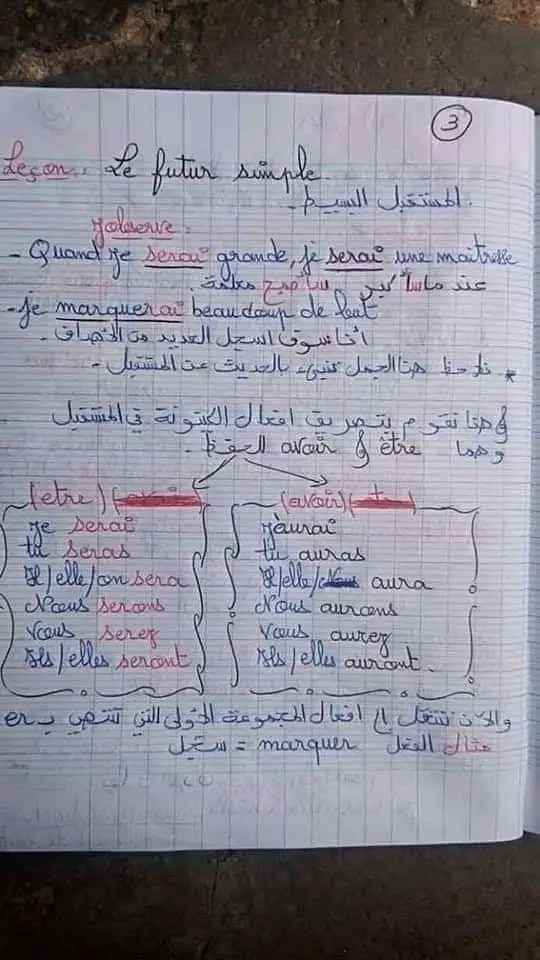 3
Leçon: Le futur simple.
المستقبل البسيط.
J'observe:
- Quand je serai grande, je serai une maitresse
عند ما سأكبر سأصبح معلمة.
- Je marquerai beaucoup de but
أنا سوف اسجل العديد من الأهداف.
* نلاحظ هنا الجمل تنبيء بالحديث عن المستقبل -
و هنا نقوم بتصريف افعال الكينونة في المستقبل
وهما être و avoir للحفظ.
(etre) (avoir)
je serai
tu seras
Il/elle/on sera
Nous serons
Vous serez
Ils/elles seront
J'aurai
tu auras
Il/elle/ aura
Nous aurons
Vous aurez
Ils/elles auront.
والآن ننتقل الى افعال المجموعة الأولى التي تنتهي ب er
مثال الفعل marquer = سجل